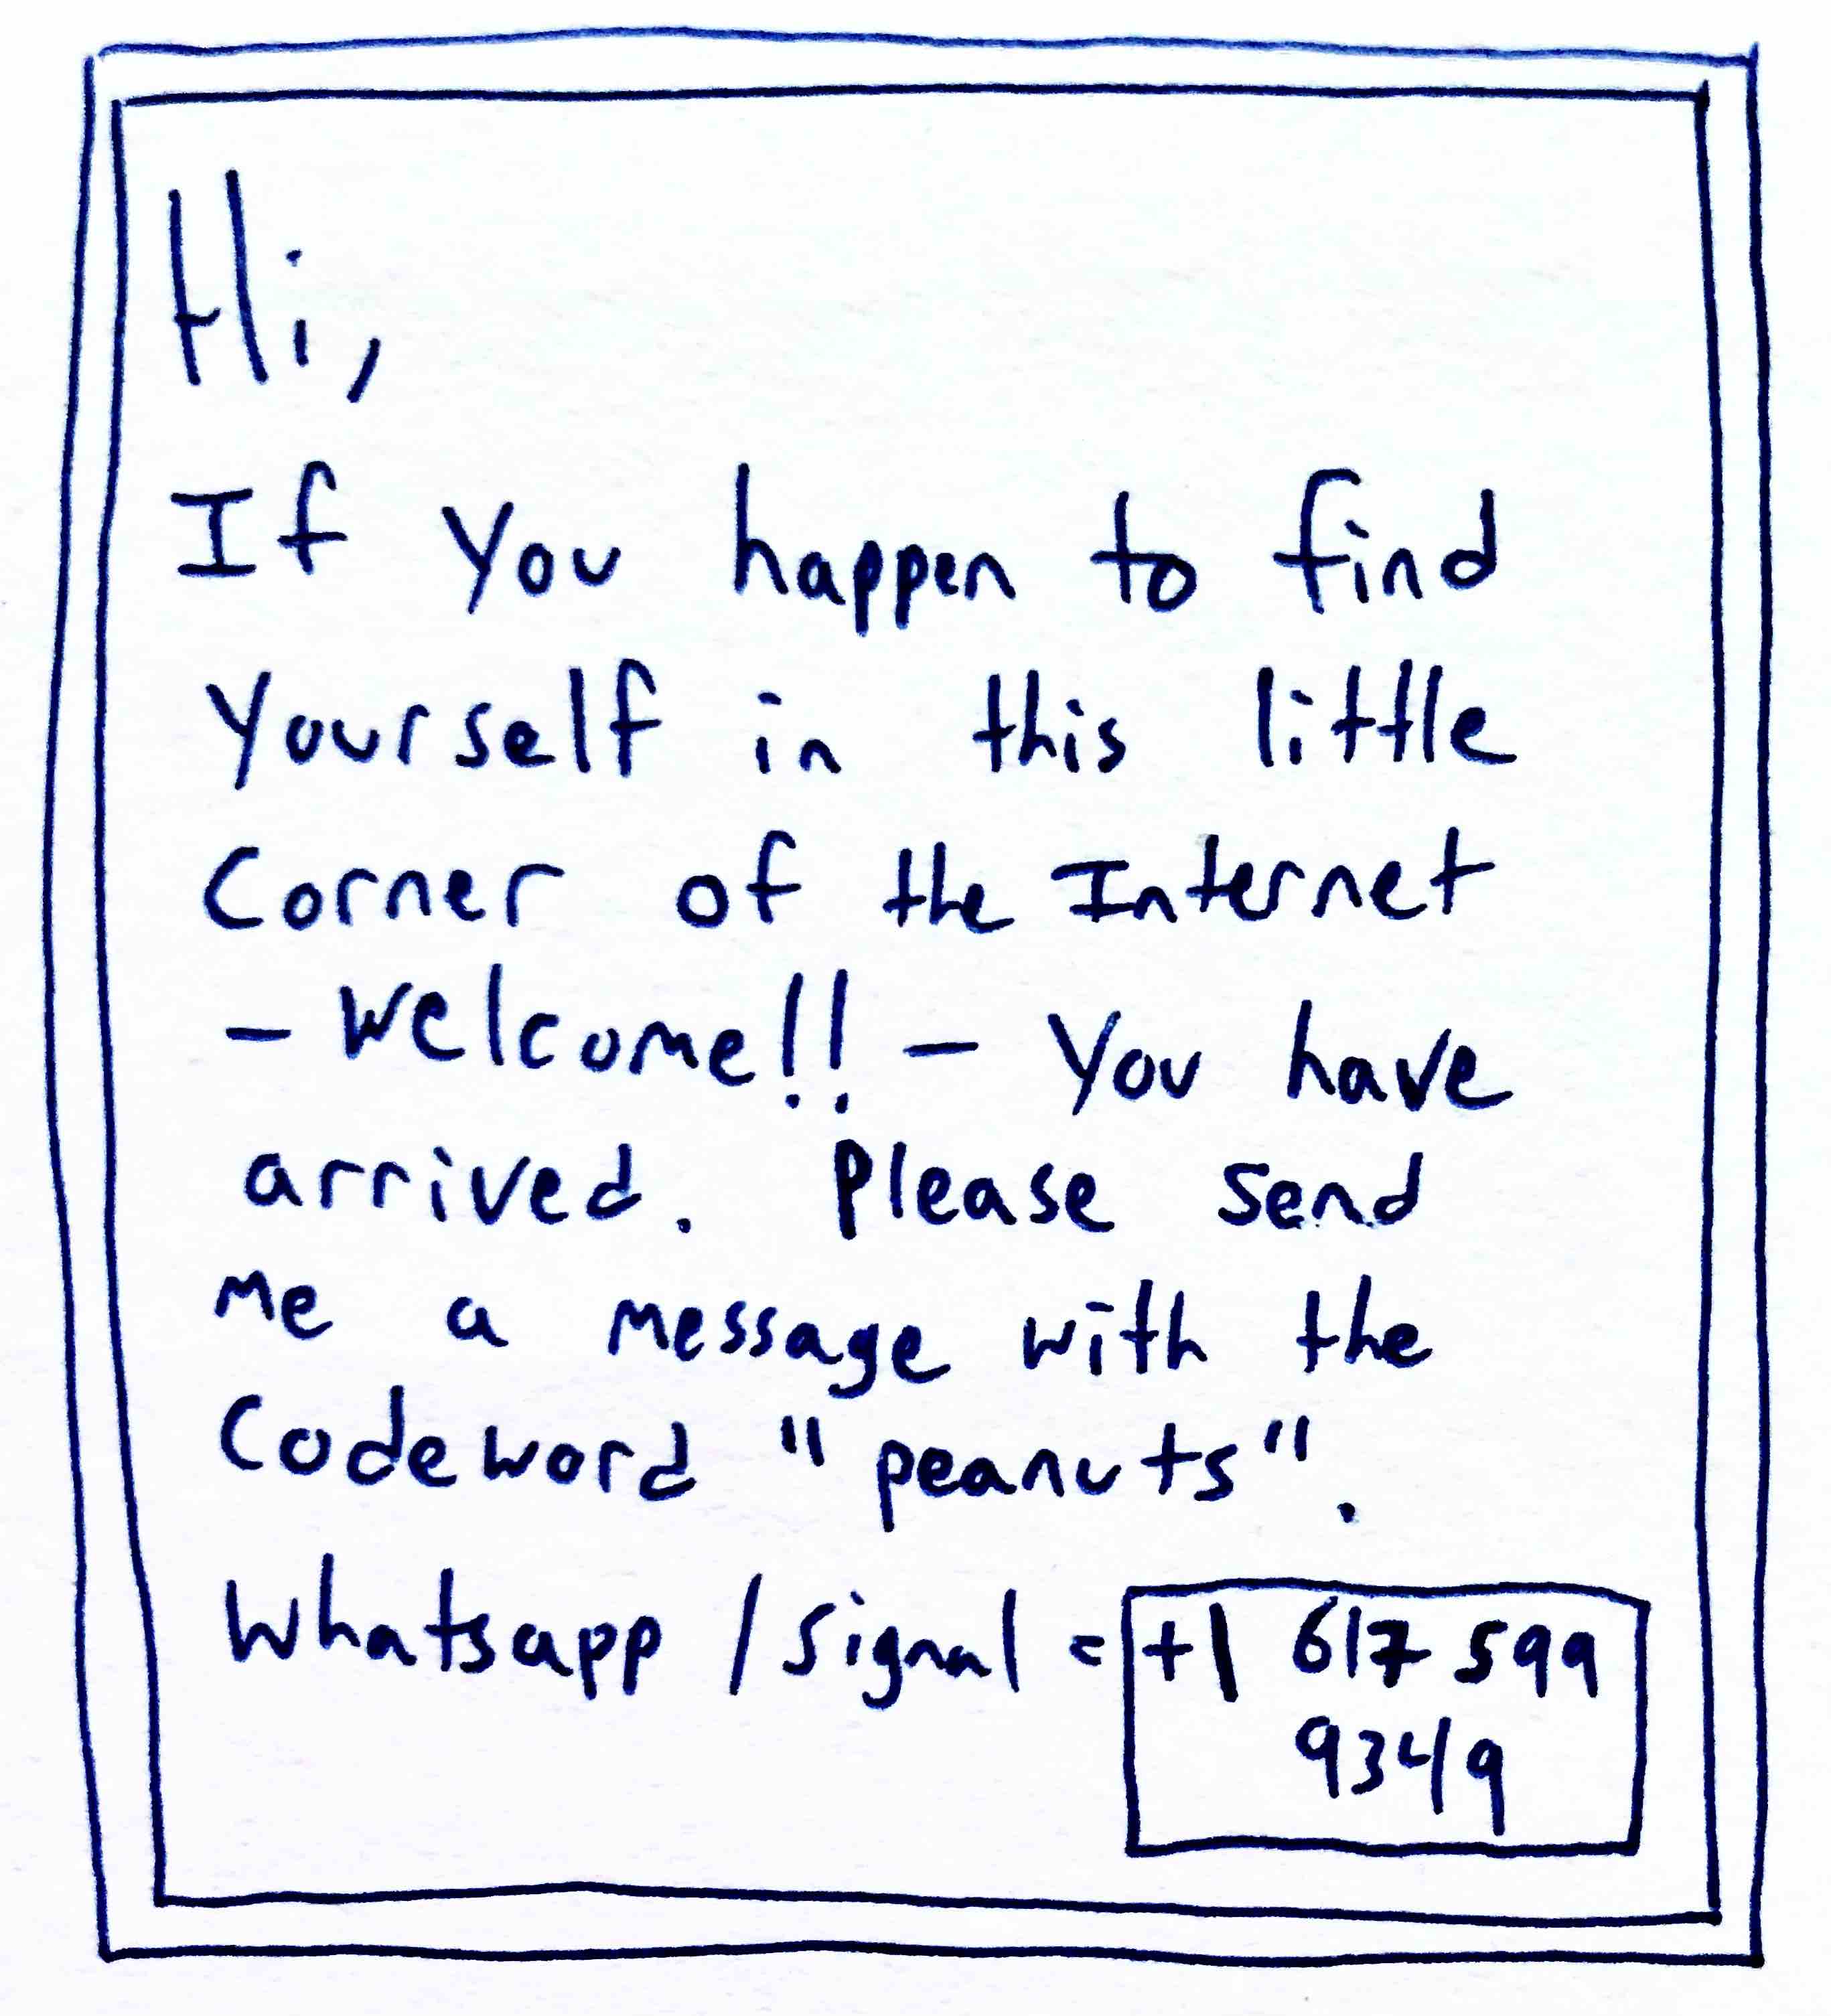 Hi,
If you happen to find
yourself in this little
Corner of the Internet
- Welcome!! - You have
arrived. Please send
me a message with the
Codeword "peanuts".
Whatsapp / Signal = +1 617 599
9349